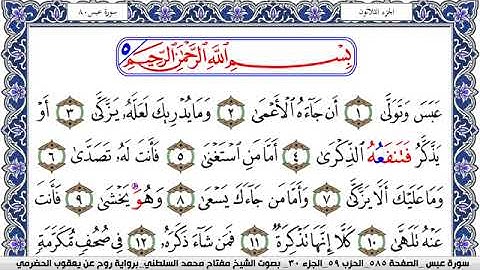 سورة عبس ٨٠
الجزء الثلاثون
بِسْمِ اللَّهِ الرَّحْمَٰنِ الرَّحِيمِ
عَبَسَ وَتَوَلَّىٰ ١ أَن جَآءَهُ الْأَعْمَىٰ ٢ وَمَا يُدْرِيكَ لَعَلَّهُۥ يَزَّكَّىٰ ٣ أَوْ
يَذَّكَّرُ فَتَنفَعُهُ الذِّكْرَىٰ ٤ أَمَّا مَنِ اسْتَغْنَىٰ ٥ فَأَنتَ لَهُۥ تَصَدَّىٰ ٦
وَمَا عَلَيْكَ أَلَّا يَزَّكَّىٰ ٧ وَأَمَّا مَن جَآءَكَ يَسْعَىٰ ٨ وَهُوَ يَخْشَىٰ ٩ فَأَنتَ
عَنْهُ تَلَهَّىٰ ١٠ كَلَّآ إِنَّهَا تَذْكِرَةٌ ١١ فَمَن شَآءَ ذَكَرَهُۥ ١٢ فِي صُحُفٍ مُّكَرَّمَةٍ
سورة عبس الصفحة ٥٨٥ الحزب ٥٩ الجزء ٣٠ بصوت الشيخ مفتاح محمد السلطني برواية روح عن يعقوب الحضرمي